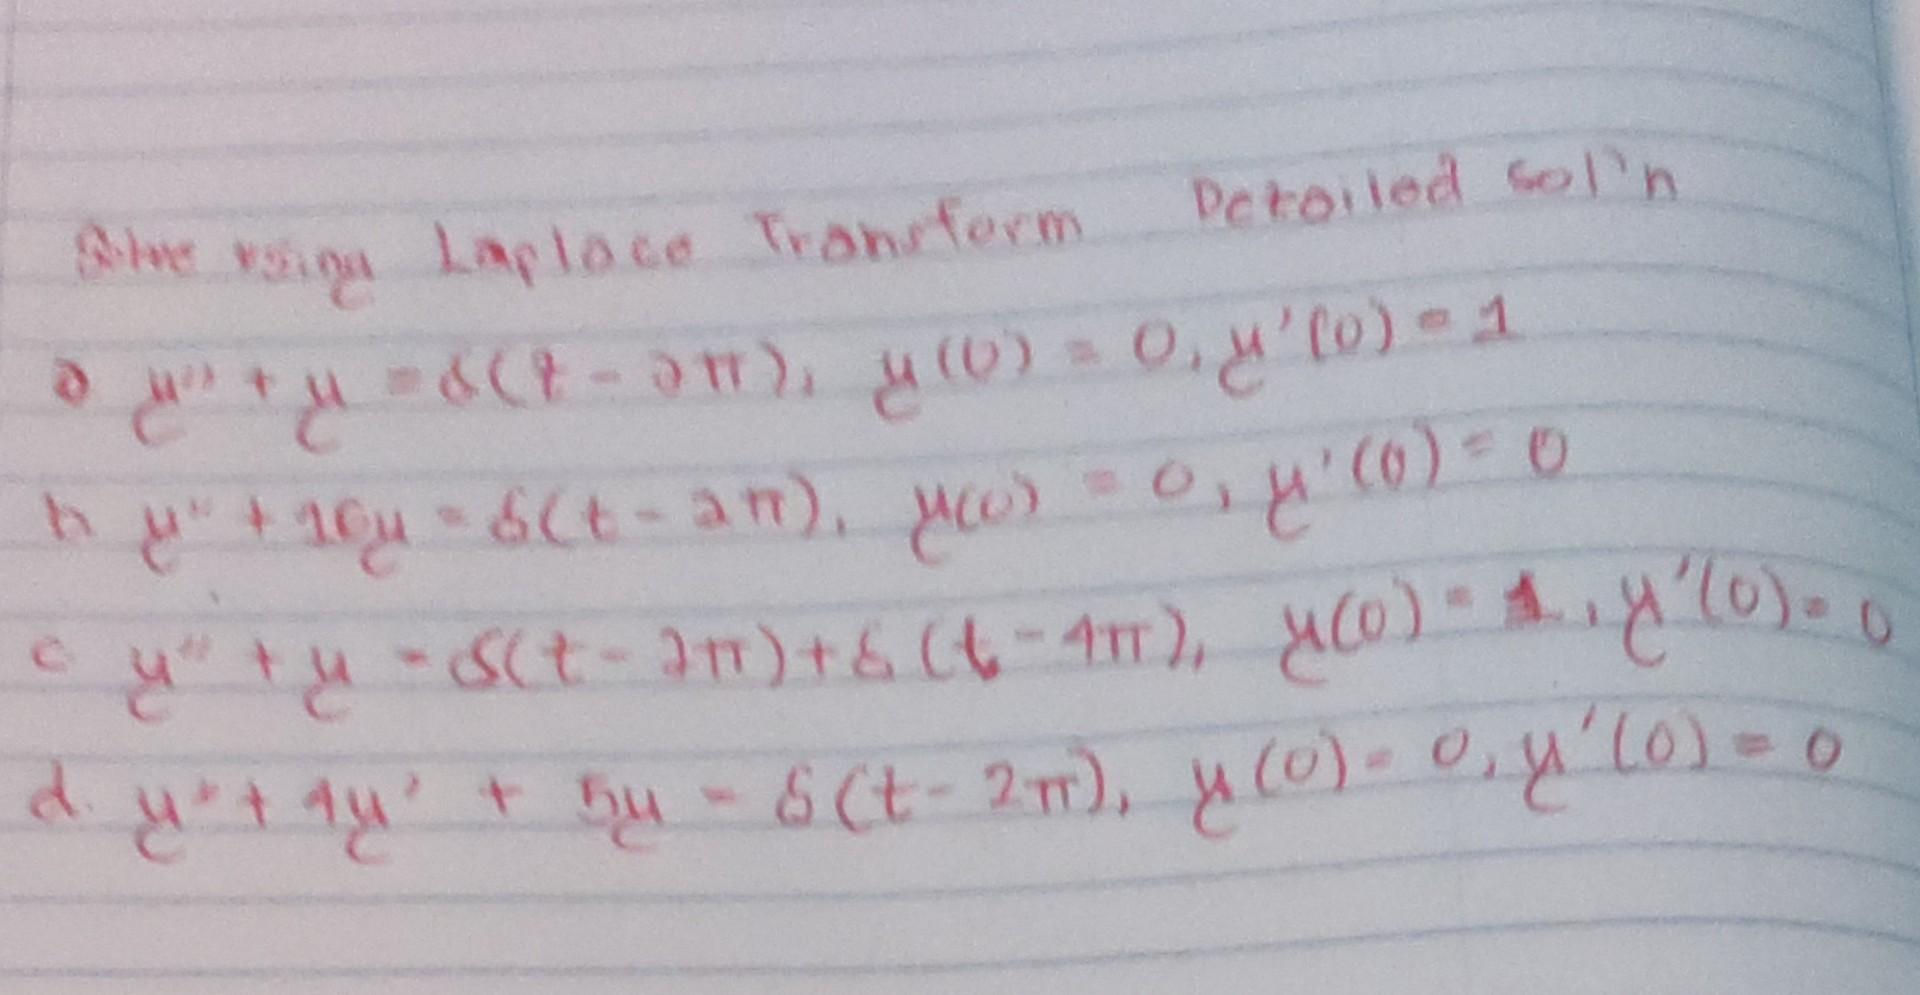 Solve using Laplace Transform Detailed sol'n
a y'' + y = δ(t - 2π), y(0) = 0, y'(0) = 1
b y'' + 16y = δ(t - 2π), y(0) = 0, y'(0) = 0
c y'' + y = δ(t - 2π) + δ(t - 4π), y(0) = 1, y'(0) = 0
d. y'' + 4y' + 5y = δ(t - 2π), y(0) = 0, y'(0) = 0